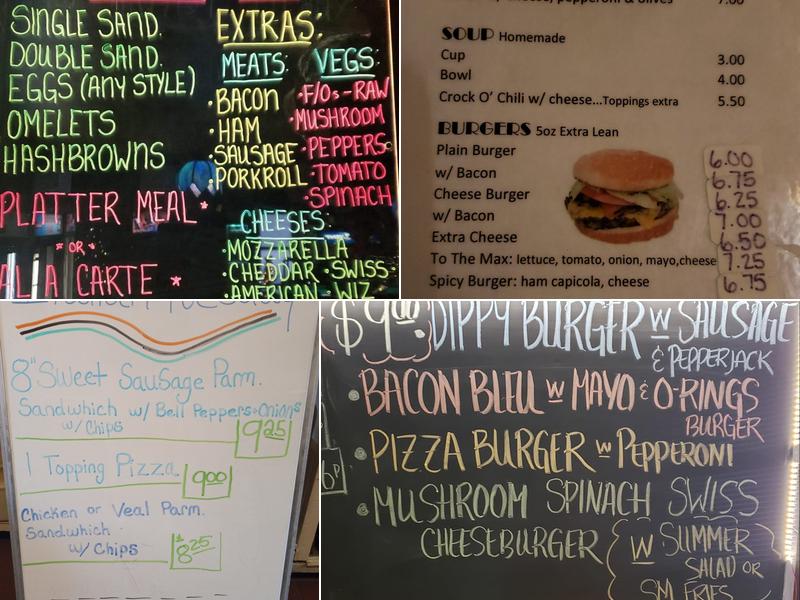 SINGLE SAND.
DOUBLE SAND.
EGGS (ANY STYLE)
OMELETS
HASHBROWNS
PLATTER MEAL*
*OR*
AL A CARTE *
EXTRAS:
MEATS:
•BACON
•HAM
•SAUSAGE
•PORKROLL
VEGS:
•F/O's-RAW
•MUSHROOM
•PEPPERS
•TOMATO
•SPINACH
CHEESES:
•MOZZARELLA
•CHEDDAR •SWISS
•AMERICAN •WIZ
cheese, pepperoni & olives 7.00
SOUP Homemade
Cup 3.00
Bowl 4.00
Crock O' Chili w/ cheese...Toppings extra 5.50
BURGERS 5oz Extra Lean
Plain Burger 6.00
w/ Bacon 6.75
Cheese Burger 6.25
w/ Bacon 7.00
Extra Cheese 6.50
To The Max: lettuce, tomato, onion, mayo,cheese 7.25
Spicy Burger: ham capicola, cheese 6.75
8" Sweet Sausage Parm.
Sandwhich w/ Bell Peppers+Onions
w/ Chips 9.25
1 Topping Pizza 9.00
Chicken or Veal Parm.
Sandwhich
w/ Chips $8.25
$9.00 DIPPY BURGER W SAUSAGE
& PEPPERJACK
•BACON BLEU W MAYO & O-RINGS
BURGER
•PIZZA BURGER W PEPPERONI
•MUSHROOM SPINACH SWISS
CHEESEBURGER
W SUMMER
SALAD OR
SM. FRIES